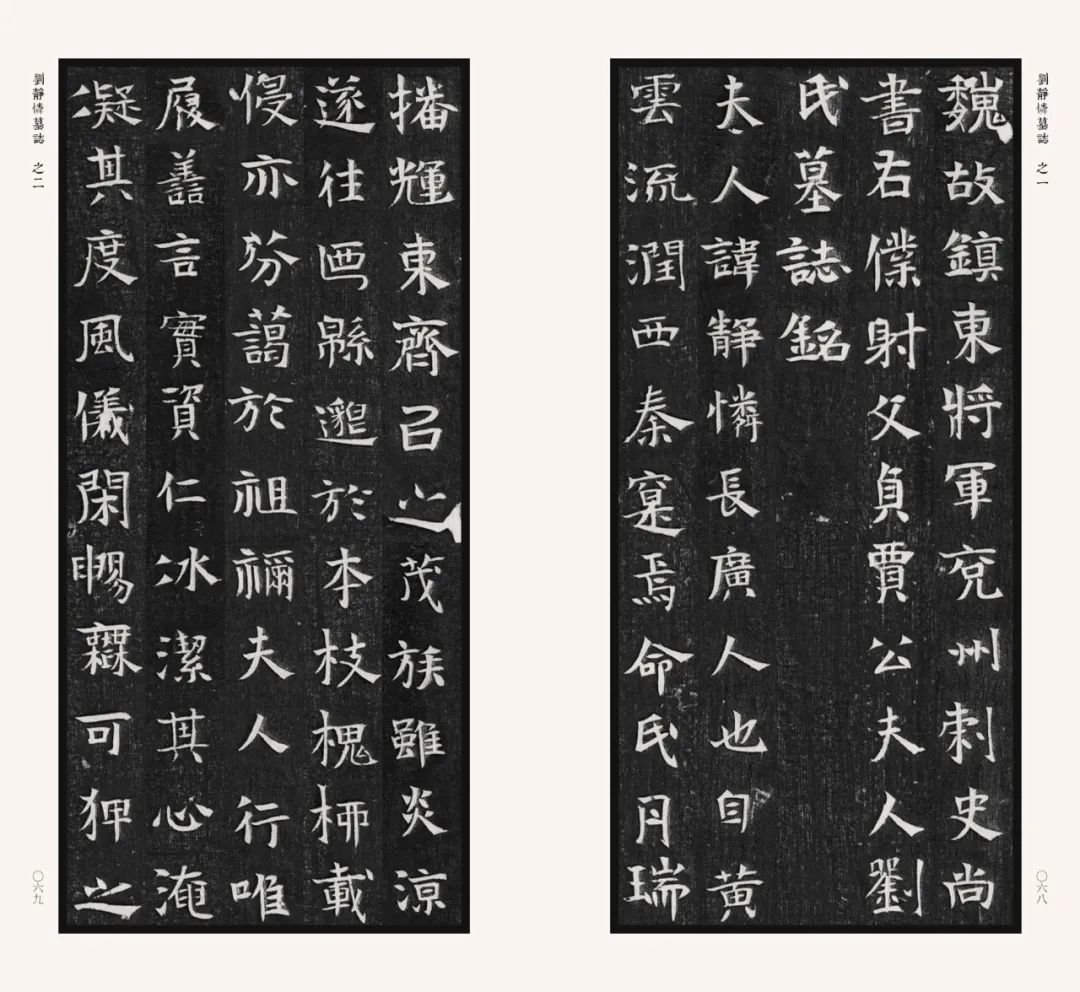 劉靜憐墓誌 之一
魏故鎮東將軍兗州刺史尚
書右僕射文貞賈公夫人劉
氏墓誌銘
夫人諱靜憐長廣人也自黃
雲流潤西秦寔焉命氏丹瑞
〇六八
播輝東齊召之茂族雖炎涼
遂往迺緜邈於本枝槐柳載
侵亦芬藹於祖禰夫人行唯
履善言實資仁冰潔其心淹
凝其度風儀閑暢可狎之
劉靜憐墓誌 之二
〇六九